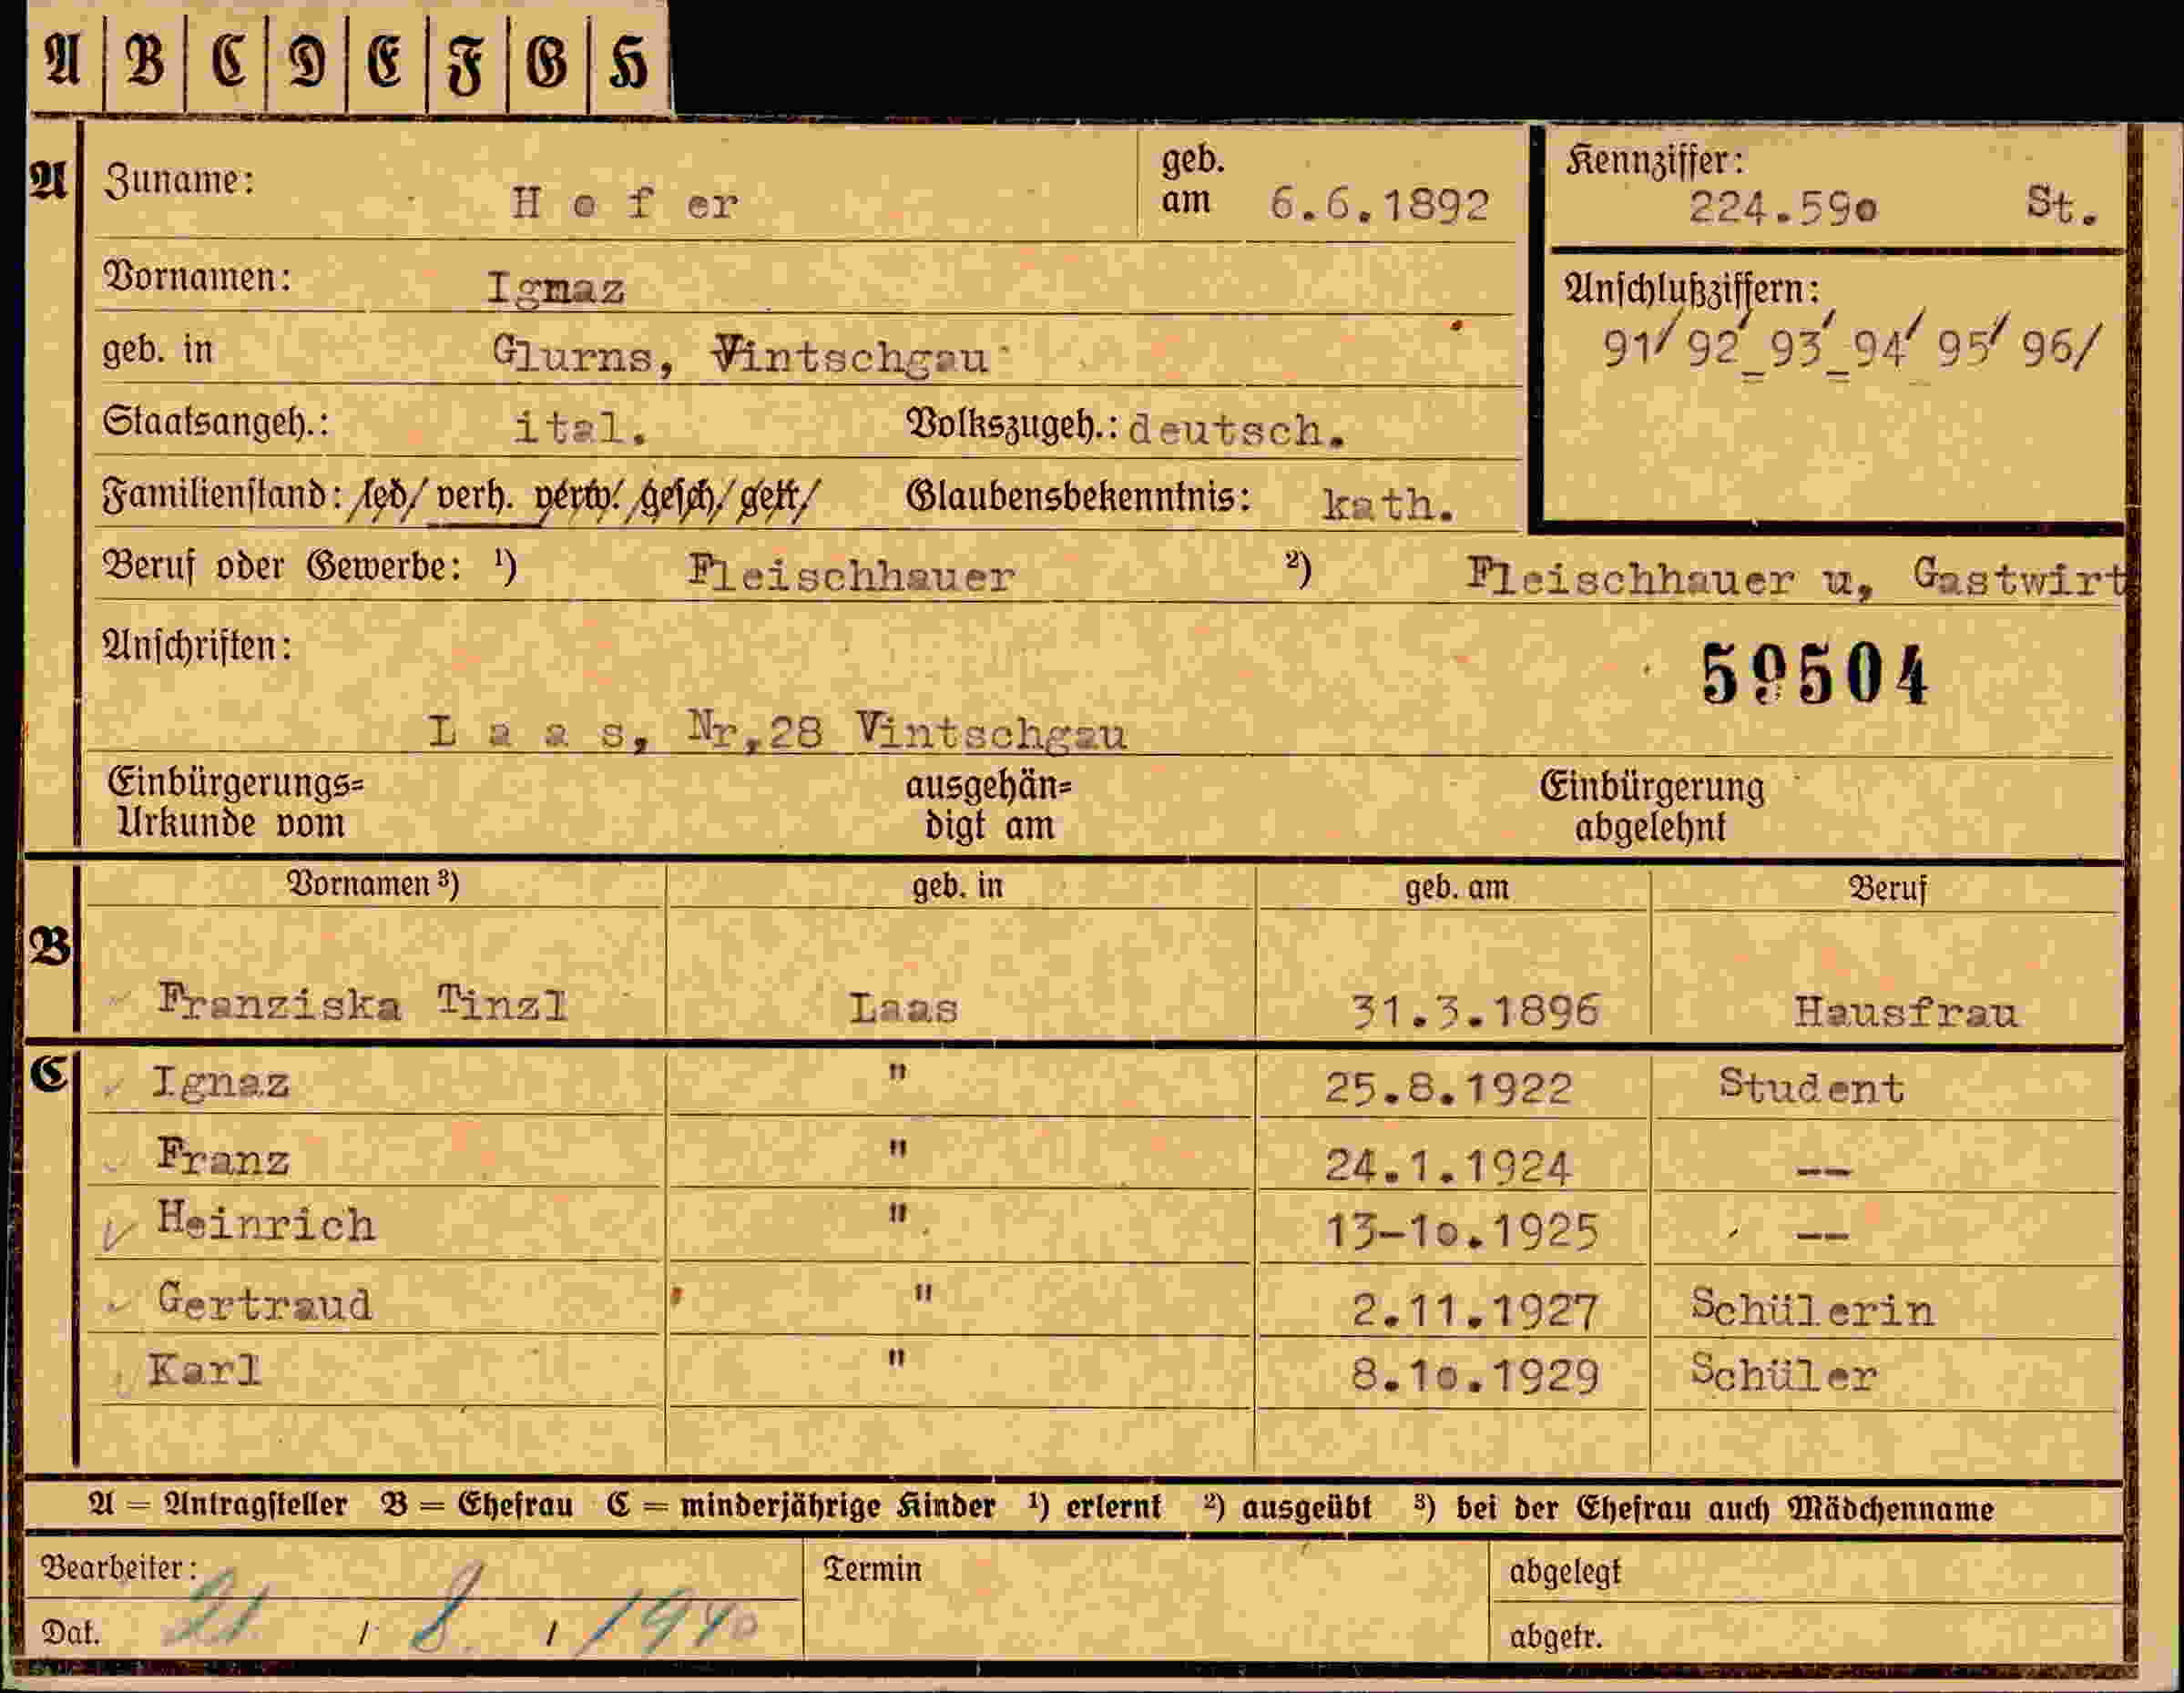 A B C D E F G H
A Zuname: H o f er geb. am 6.6.1892 Kennziffer: 224.59o St.
Vornamen: Ignaz
Anschlußziffern:
91/ 92/_93/_94/ 95/ 96/
geb. in Glurns, Vintschgau
Staatsangeh.: ital. Volkszugeh.: deutsch.
Familienstand: led/ verh. verw. gesch/ getr/ Glaubensbekenntnis: kath.
Beruf oder Gewerbe: ¹) Fleischhauer ²) Fleischhauer u, Gastwirt
Anschriften:
59504
L a a s, Nr,28 Vintschgau
Einbürgerungs= ausgehän= Einbürgerung
Urkunde vom digt am abgelehnt
Vornamen ³) geb. in geb. am Beruf
B
Franziska Tinzl Laas 31.3.1896 Hausfrau
C Ignaz " 25.8.1922 Student
Franz " 24.1.1924 --
Heinrich " 13-1o.1925 --
Gertraud " 2.11.1927 Schülerin
Karl " 8.1o.1929 Schüler
A = Antragsteller B = Ehefrau C = minderjährige Kinder ¹) erlernt ²) ausgeübt ³) bei der Ehefrau auch Mädchenname
Bearbeiter: Termin abgelegt
Dat. 21 / 8. / 1940 abgetr.